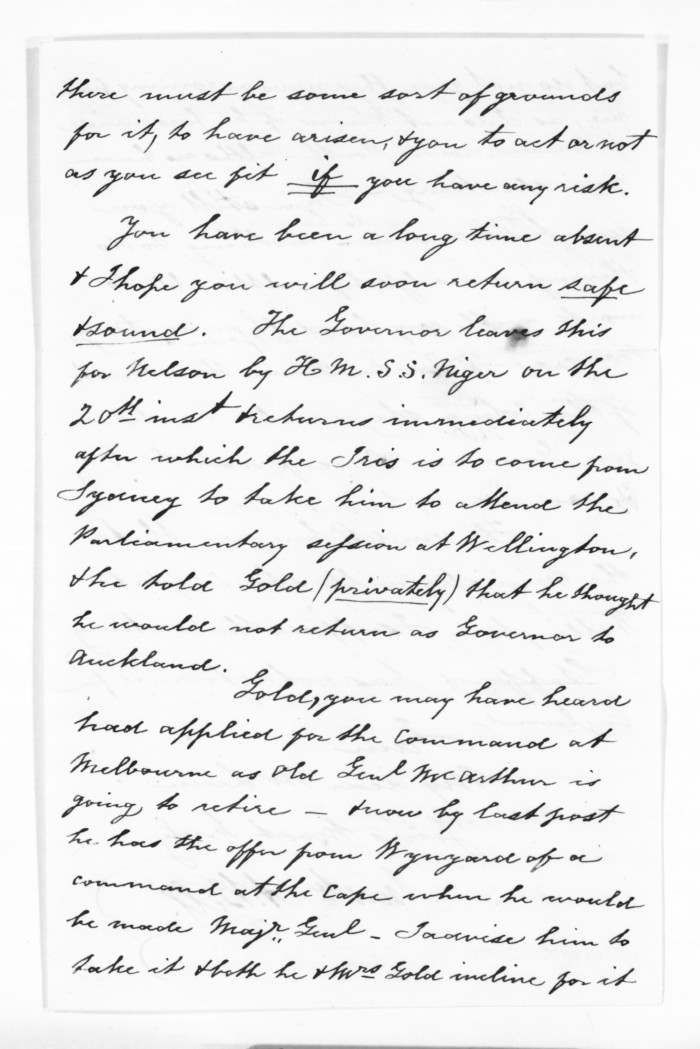 there must be some sort of grounds
for it, to have arisen, & you to act or not
as you see fit if you have any risk.
You have been a long time absent
& I hope you will soon return safe
& sound. The Governor leaves this
for Nelson by H M. S. S. Niger on the
20th inst & returns immediately
after which the Iris is to come from
Sydney to take him to attend the
Parliamentary session at Wellington,
& he told Gold (privately) that he thought
he would not return as Governor to
Auckland.
Gold, you may have heard
had applied for the command at
Melbourne as old Genl McArthur is
going to retire — & now by last post
he has the offer from Wynyard of a
command at the Cape when he would
be made Majr. Genl - I advise him to
take it & both he & Mrs Gold incline for it